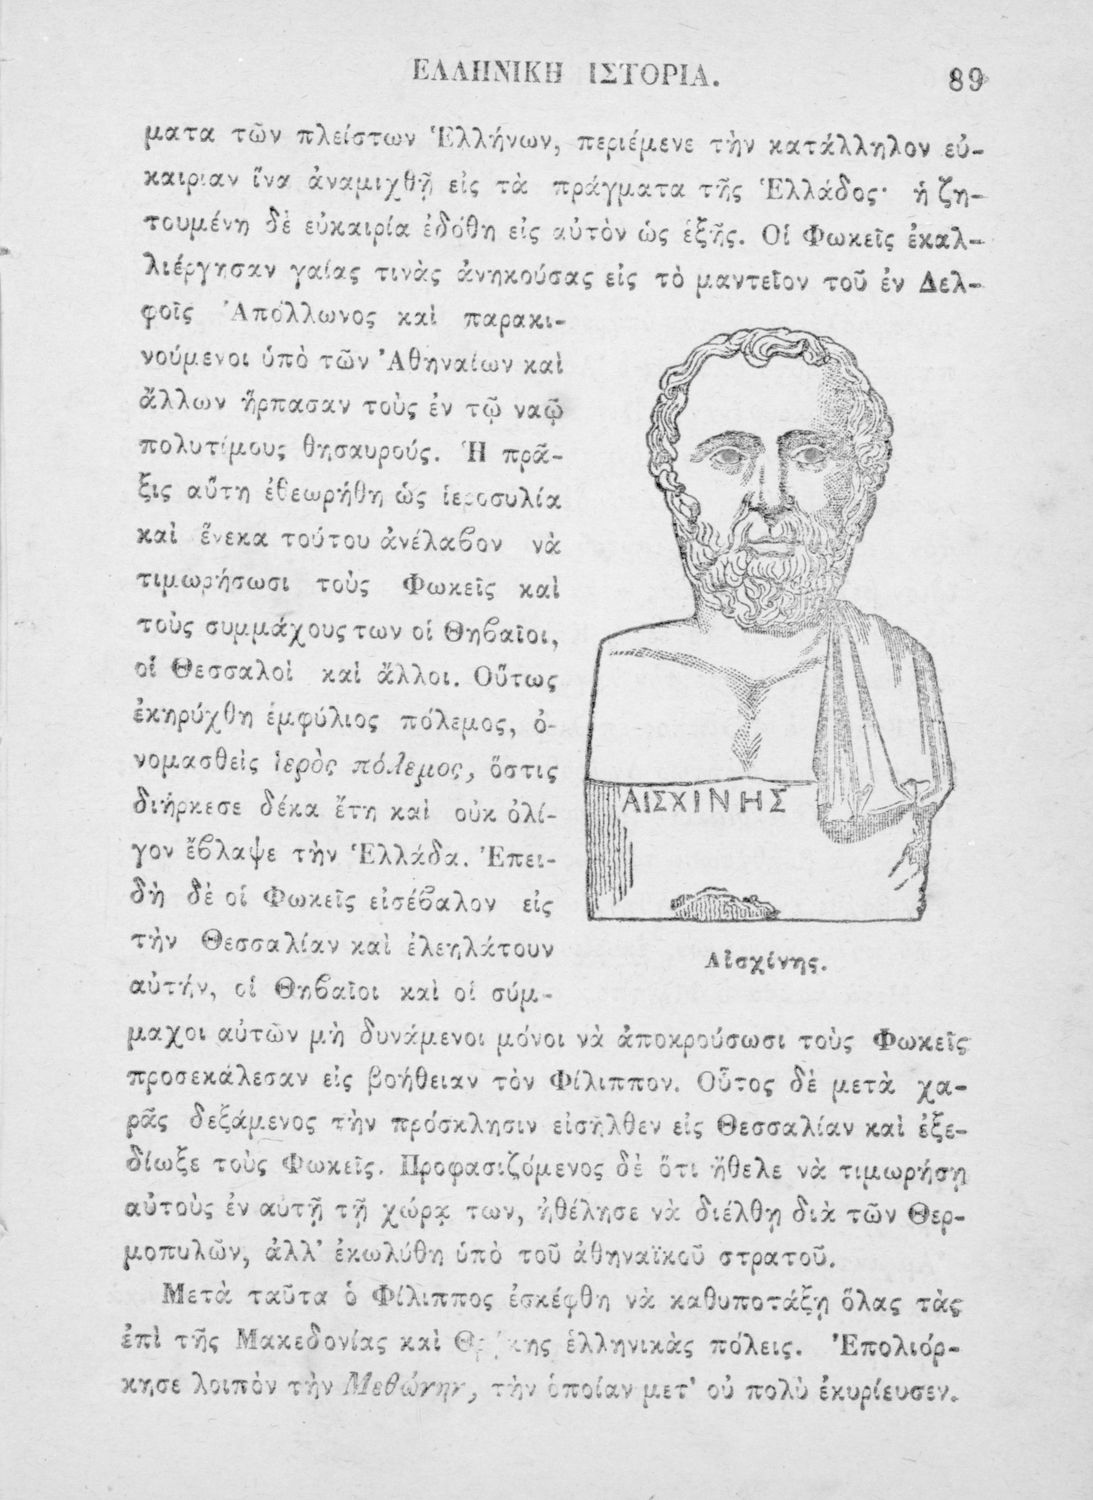 ΕΛΛΗΝΙΚΗ ΙΣΤΟΡΙΑ. 89
ματα τῶν πλείστων Ἑλλήνων, περιέμενε τὴν κατάλληλον εὐ-
καιρίαν ἵνα ἀναμιχθῇ εἰς τὰ πράγματα τῆς Ἑλλάδος· ἡ ζη-
τουμένη δὲ εὐκαιρία ἐδόθη εἰς αὐτὸν ὡς ἑξῆς. Οἱ Φωκεῖς ἐκαλ-
λιέργησαν γαίας τινὰς ἀνηκούσας εἰς τὸ μαντεῖον τοῦ ἐν Δελ-
φοῖς Ἀπόλλωνος καὶ παρακι-
νούμενοι ὑπὸ τῶν Ἀθηναίων καὶ
ἄλλων ἥρπασαν τοὺς ἐν τῷ ναῷ
πολυτίμους θησαυρούς. Ἡ πρᾶ-
ξις αὕτη ἐθεωρήθη ὡς ἱεροσυλία
καὶ ἕνεκα τούτου ἀνέλαϐον νὰ
τιμωρήσωσι τοὺς Φωκεῖς καὶ
τοὺς συμμάχους των οἱ Θηϐαῖοι,
οἱ Θεσσαλοὶ καὶ ἄλλοι. Οὕτως
ἐκηρύχθη ἐμφύλιος πόλεμος, ὀ-
νομασθεὶς ἱερὸς πόλεμος, ὅστις
διήρκεσε δέκα ἔτη καὶ οὐκ ὀλί-
γον ἔϐλαψε τὴν Ἑλλάδα. Ἐπει-
δὴ δὲ οἱ Φωκεῖς εἰσέϐαλον εἰς
τὴν Θεσσαλίαν καὶ ἐλεηλάτουν
αὐτήν, οἱ Θηϐαῖοι καὶ οἱ σύμ-
ΑΙΣΧΙΝΗΣ
Αἰσχίνης.
μαχοι αὐτῶν μὴ δυνάμενοι μόνοι νὰ ἀποκρούσωσι τοὺς Φωκεῖς
προσεκάλεσαν εἰς βοήθειαν τὸν Φίλιππον. Οὗτος δὲ μετὰ χα-
ρᾶς δεξάμενος τὴν πρόσκλησιν εἰσῆλθεν εἰς Θεσσαλίαν καὶ ἐξε-
δίωξε τοὺς Φωκεῖς. Προφασιζόμενος δὲ ὅτι ἤθελε νὰ τιμωρήσῃ
αὐτοὺς ἐν αὐτῇ τῇ χώρᾳ των, ἠθέλησε νὰ διέλθῃ διὰ τῶν Θερ-
μοπυλῶν, ἀλλ’ ἐκωλύθη ὑπὸ τοῦ ἀθηναϊκοῦ στρατοῦ.
Μετὰ ταῦτα ὁ Φίλιππος ἐσκέφθη νὰ καθυποτάξῃ ὅλας τὰς
ἐπὶ τῆς Μακεδονίας καὶ Θρᾴκης ἑλληνικὰς πόλεις. Ἐπολιόρ-
κησε λοιπὸν τὴν Μεθώνην, τὴν ὁποίαν μετ’ οὐ πολὺ ἐκυρίευσεν.